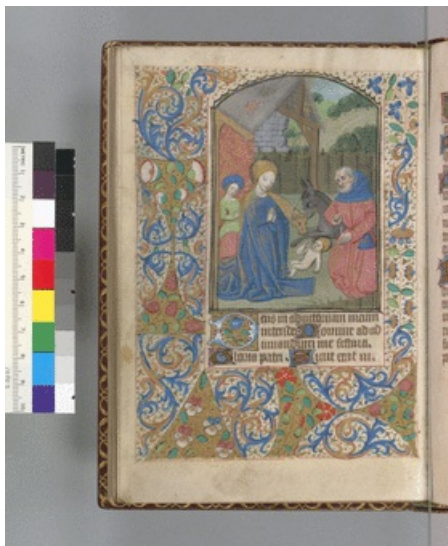 Deus in adiutorium meum
intende. Domine ad ad
iuuandum me festina.
Gloria patri. Sicut erat in.